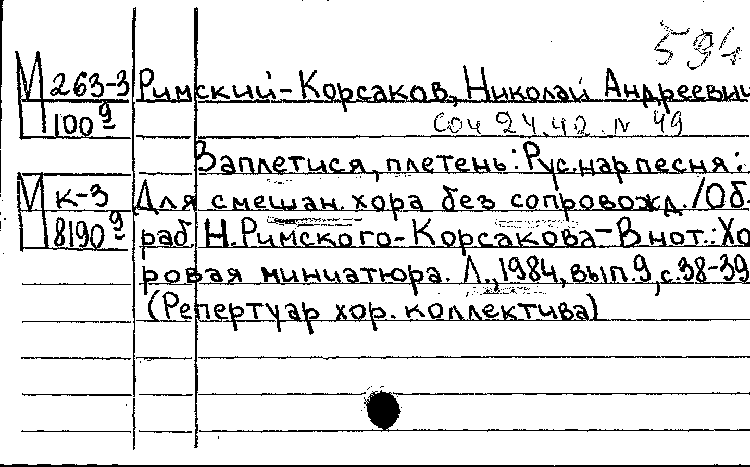 594
М 263-3 Римский-Корсаков, Николай Андреевич
П 100 9
Соч 24.42. № 49
Заплетися, плетень: Рус. нар песня:
М к-3 Для смешан. хора без сопровожд. / Об-
П 8190 9 раб. Н. Римского-Корсакова – В нот.: Хо-
ровая миниатюра. Л., 1984, вып. 9, с. 38-39
(Репертуар хор. коллектива)